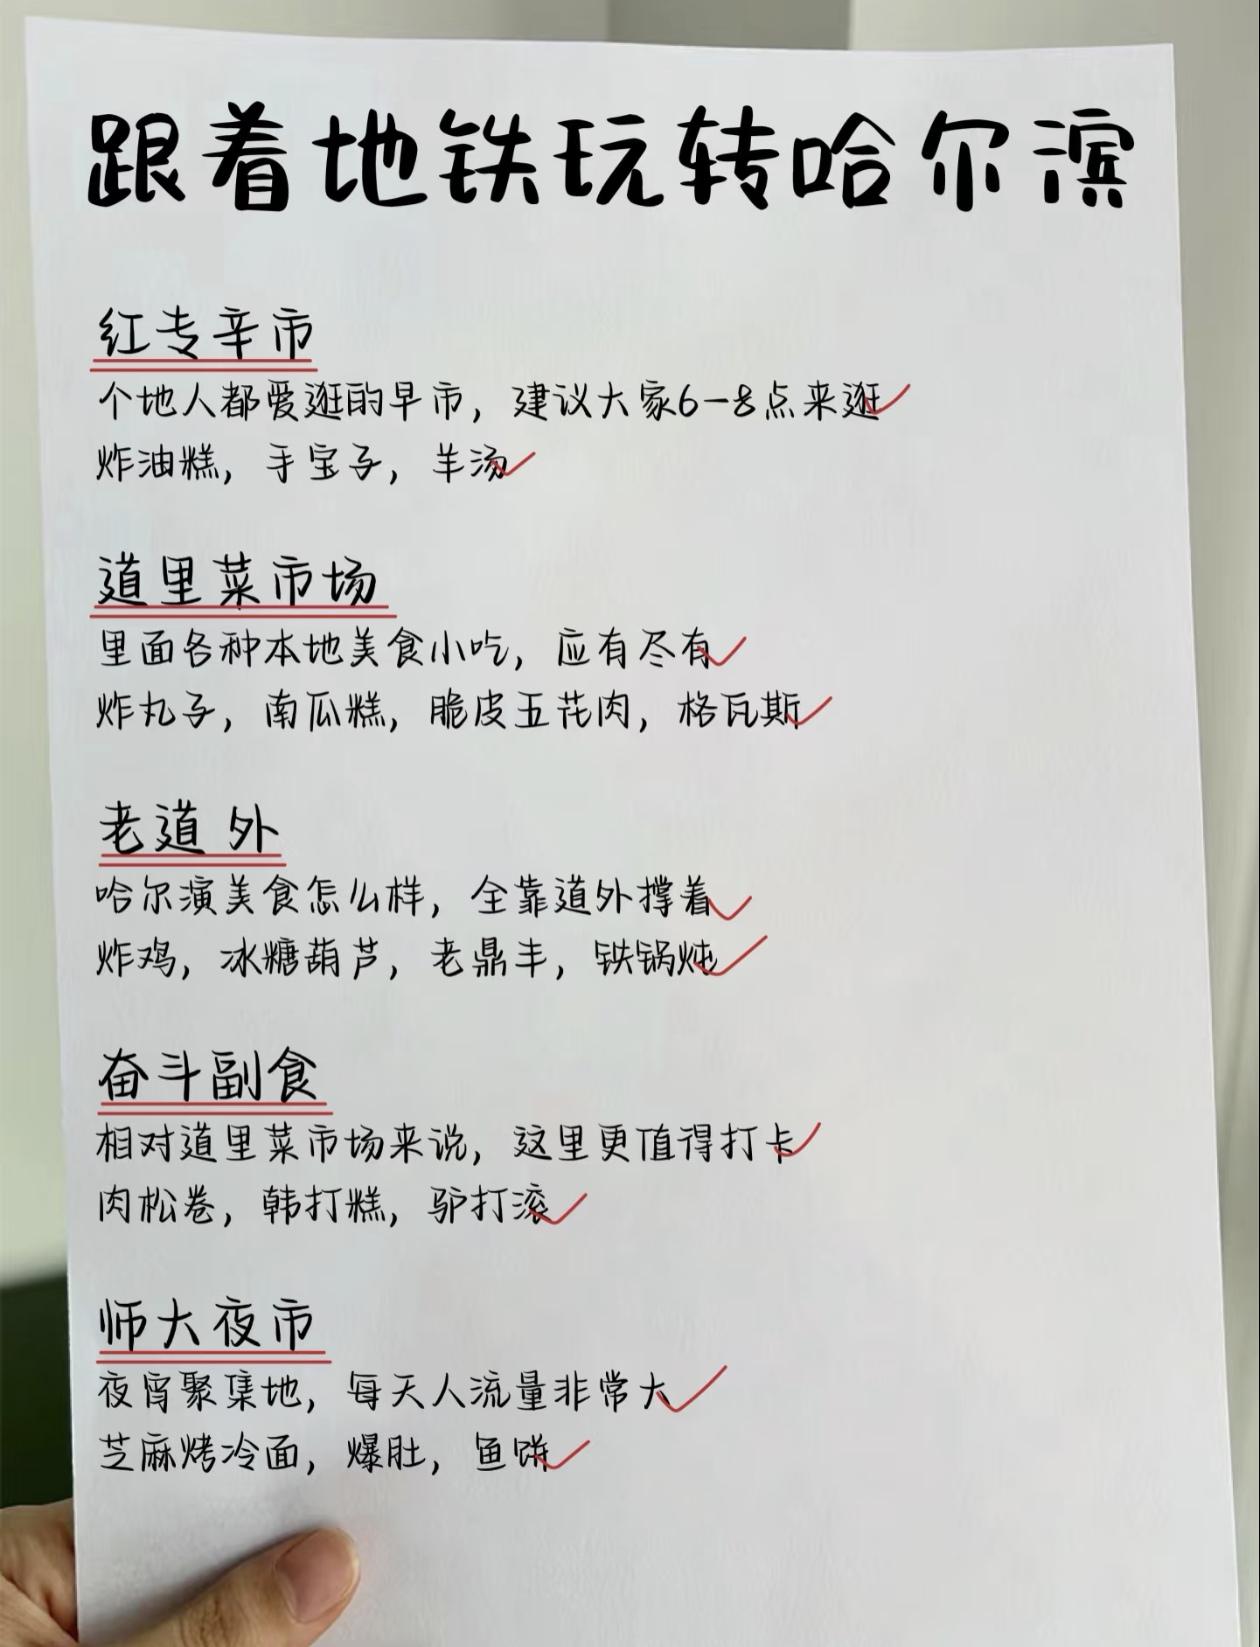 跟着地铁玩转哈尔滨
红专辛市
个地人都爱逛的早市，建议大家6-8点来逛
炸油糕，手宝子，羊汤
道里菜市场
里面各种本地美食小吃，应有尽有
炸丸子，南瓜糕，脆皮五花肉，格瓦斯
老道外
哈尔演美食怎么样，全靠道外撑着
炸鸡，冰糖葫芦，老鼎丰，铁锅炖
奋斗副食
相对道里菜市场来说，这里更值得打卡
肉松卷，韩打糕，驴打滚
师大夜市
夜宵聚集地，每天人流量非常大
芝麻烤冷面，爆肚，鱼饼